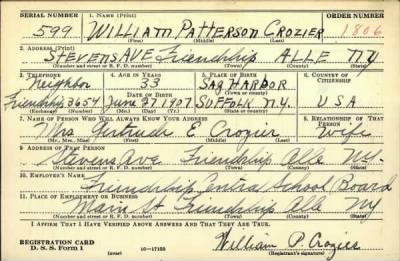 SERIAL NUMBER 1. NAME (Print) ORDER NUMBER
599 WILLIAM PATTERSON CROZIER 1806
(First) (Middle) (Last)
2. ADDRESS (Print)
STEVENS AVE Friendship ALLE NY
(Number and street or R. F. D. number) (Town) (County) (State)
3. TELEPHONE 4. AGE IN YEARS 5. PLACE OF BIRTH 6. COUNTRY OF CITIZENSHIP
Neighbor 33 SAG HARBOR
DATE OF BIRTH
Friendship 3654 June 27 1907 SUFFOLK N.Y. USA
(Exchange) (Number) (Mo.) (Day) (Yr.) (State or country)
7. NAME OF PERSON WHO WILL ALWAYS KNOW YOUR ADDRESS 8. RELATIONSHIP OF THAT PERSON
Mrs Gertrude E Crozier Wife
(Mr., Mrs., Miss) (First) (Middle) (Last)
9. ADDRESS OF THAT PERSON
Stevens Ave Friendship Alle NY.
(Number and street or R. F. D. number) (Town) (County) (State)
10. EMPLOYER'S NAME
Friendship Central School Board
11. PLACE OF EMPLOYMENT OR BUSINESS
Main St Friendship Alle NY
(Number and street or R. F. D. number) (Town) (County) (State)
I AFFIRM THAT I HAVE VERIFIED ABOVE ANSWERS AND THAT THEY ARE TRUE.
REGISTRATION CARD
D. S. S. Form 1 (over) 16—17105 William P. Crozier
(Registrant's signature)